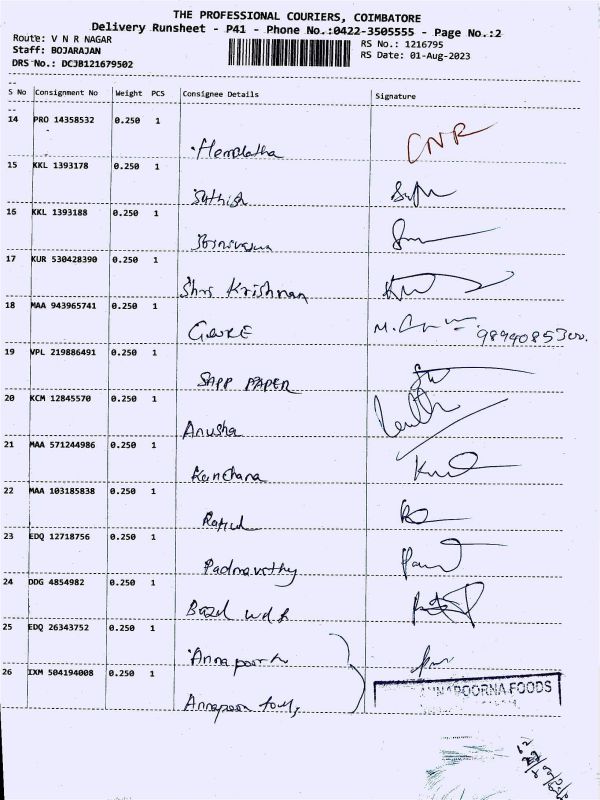 THE PROFESSIONAL COURIERS, COIMBATORE
Delivery Runsheet - P41 - Phone No.:0422-3505555 - Page No.:2
Route: V N R NAGAR
RS No.: 1216795
Staff: BOJARAJAN
RS Date: 01-Aug-2023
DRS No.: DCJB121679502
S No Consignment No Weight PCS Consignee Details Signature
14 PRO 14358532 0.250 1
Hemalatha CNR
15 KKL 1393178 0.250 1
Sathish
16 KKL 1393188 0.250 1
17 KUR 530428390 0.250 1
Shri Krishnan
18 MAA 943965741 0.250 1
9894085300
19 VPL 219886491 0.250 1
SAPP PAPER
20 KCM 12845570 0.250 1
Anusha
21 MAA 571244986 0.250 1
Kanchana
22 MAA 103185838 0.250 1
Rahul
23 EDQ 12718756 0.250 1
Padmavathy
24 DDG 4854982 0.250 1
25 EDQ 26343752 0.250 1
Annapoorna
26 IXM 504194008 0.250 1
ANNAPOORNA FOODS